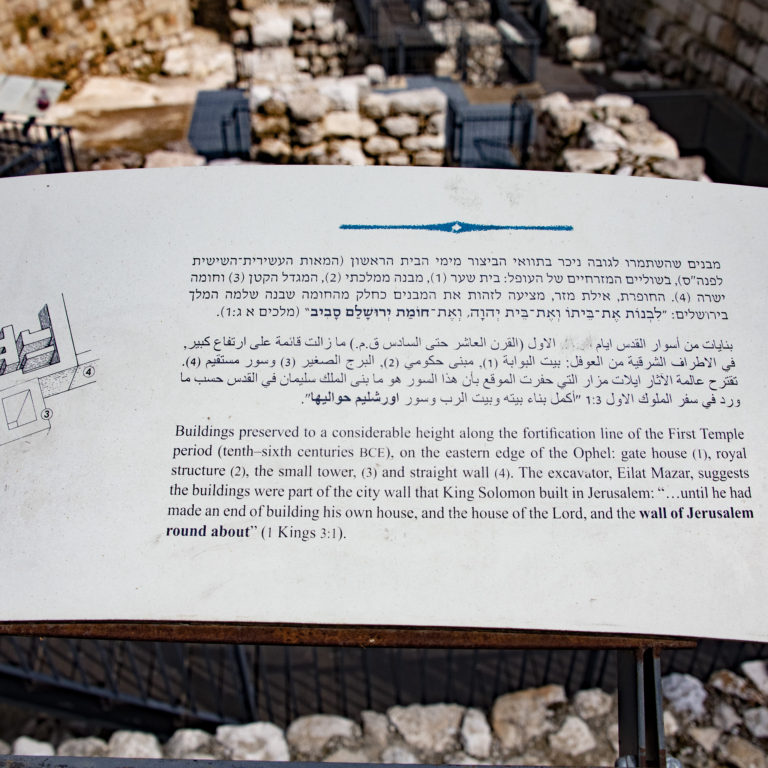 מבנים שהשתמרו לגובה ניכר בתוואי הביצור מימי הבית הראשון (המאות העשירית־השישית
לפנה"ס), בשוליים המזרחיים של העופל: בית שער (1), מבנה ממלכתי (2), המגדל הקטן (3) וחומה
ישרה (4). החופרת, אילת מזר, מציעה לזהות את המבנים כחלק מהחומה שבנה שלמה המלך
בירושלים: "לִבְנוֹת אֶת־בֵּיתוֹ וְאֶת־בֵּית יְהוָה, וְאֶת־חוֹמַת יְרוּשָׁלַם סָבִיב" (מלכים א 1:ג).
بنايات من أسوار القدس ايام الاول (القرن العاشر حتى السادس ق.م.) ما زالت قائمة على ارتفاع كبير,
في الاطراف الشرقية من العوفل: بيت البوابة (1), مبنى حكومي (2), البرج الصغير (3) وسور مستقيم (4).
تقترح عالمة الآثار ايلات مزار التي حفرت الموقع بأن هذا السور هو ما بنى الملك سليمان في القدس حسب ما
ورد في سفر الملوك الاول 1:3 "أكمل بناء بيته وبيت الرب وسور اورشليم حواليها".
Buildings preserved to a considerable height along the fortification line of the First Temple
period (tenth–sixth centuries BCE), on the eastern edge of the Ophel: gate house (1), royal
structure (2), the small tower, (3) and straight wall (4). The excavator, Eilat Mazar, suggests
the buildings were part of the city wall that King Solomon built in Jerusalem: “…until he had
made an end of building his own house, and the house of the Lord, and the wall of Jerusalem
round about” (1 Kings 3:1).
4
3